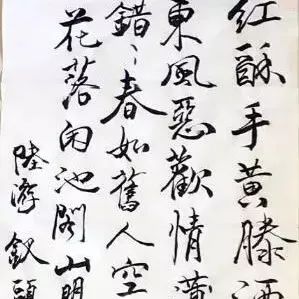 红酥手黄滕酒
東風惡歡情薄
錯〻春如舊人空
花落闲池閣山盟
陸游 釵頭